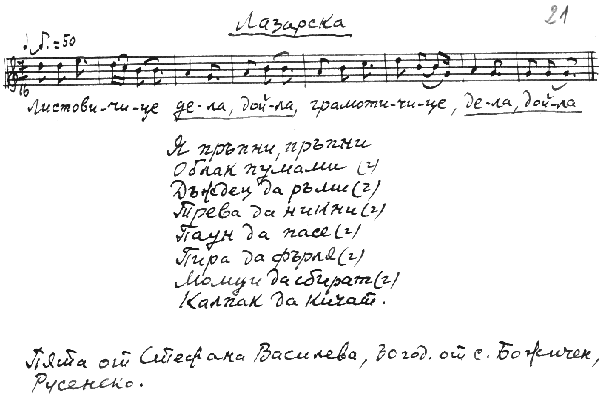 Лазарска
21
♩. = 50
Листови-чи-це де-ла, дой-ла, грамоти-чи-це, де-ла, дой-ла
Я пръпни, пръпни
Облак пумами (2)
Дъждец да ръми (2)
Трева да никни (2)
Паун да пасе (2)
Пира да фърля (2)
Момци да сбират (2)
Калпак да кичат.
Пята от Стефана Василева, 30 год. от с. Божичен,
Русенско.